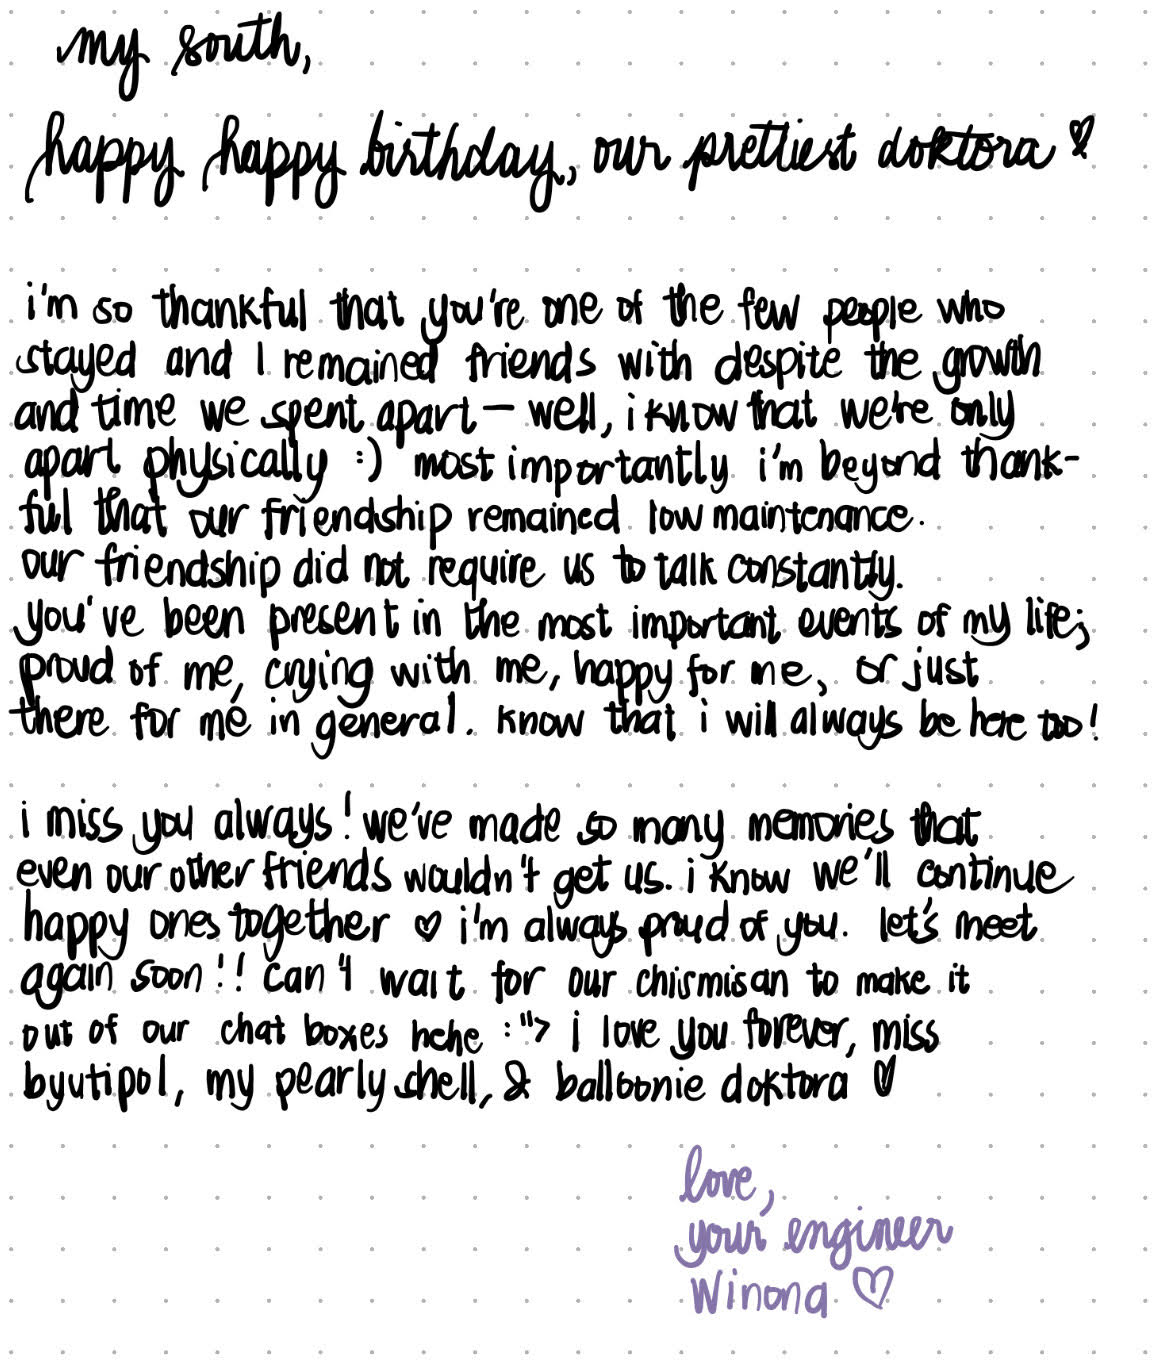 my south,
happy happy birthday, our prettiest doktora ♡
i'm so thankful that you're one of the few people who
stayed and I remained friends with despite the growth
and time we spent apart — well, i know that we're only
apart physically :) most importantly i'm beyond thank-
ful that our friendship remained low maintenance.
our friendship did not require us to talk constantly.
you've been present in the most important events of my life;
proud of me, crying with me, happy for me, or just
there for me in general. know that i will always be here too!
i miss you always! we've made so many memories that
even our other friends wouldn't get us. i know we'll continue
happy ones together ♡ i'm always proud of you. let's meet
again soon!! can't wait for our chismisan to make it
out of our chat boxes hehe :"> i love you forever, miss
byutipol, my pearly shell, & balloonie doktora ♡
love,
your engineer
Winona ♡